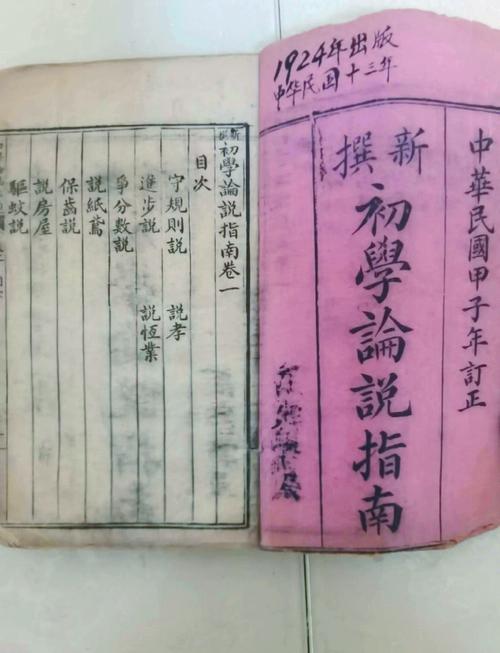 1924年出版
中华民国十三年
中華民國甲子年訂正
新撰
初學論說指南
新撰初學論說指南卷一
目次
守規則說 說孝
進步說 說恆業
爭分數說
說紙鳶
保齒說
說房屋
驅蚊說